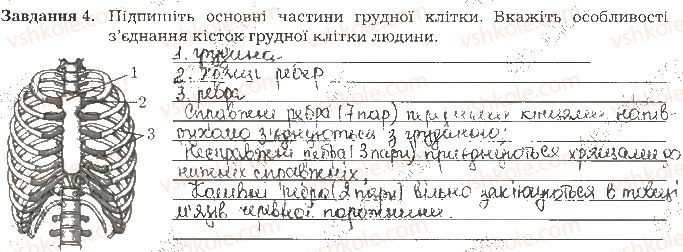 Завдання 4. Підпишіть основні частини грудної клітки. Вкажіть особливості
з'єднання кісток грудної клітки людини.
1. грудина
2. Хрящі ребер
3. ребра
Справжні ребра (7 пар) передніми кінцями напів-
рухомо з'єднуються з грудиною;
Несправжні ребра (3 пари) приєднуються хрящами до
нижніх справжніх;
Коливні ребра (2 пари) вільно закінчуються в товщі
м'язів черевної порожнини.
1
2
3
vshkole.com